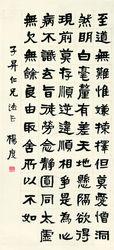 至道無難惟嫌揀擇但莫憎愛洞
然明白毫釐有差天地懸隔欲得
現前莫存順逆違順相爭是為心
病不識玄旨徒勞念靜圓同太虛
無欠無餘良由取舍所以不如
子昇仁兄法正 楊度